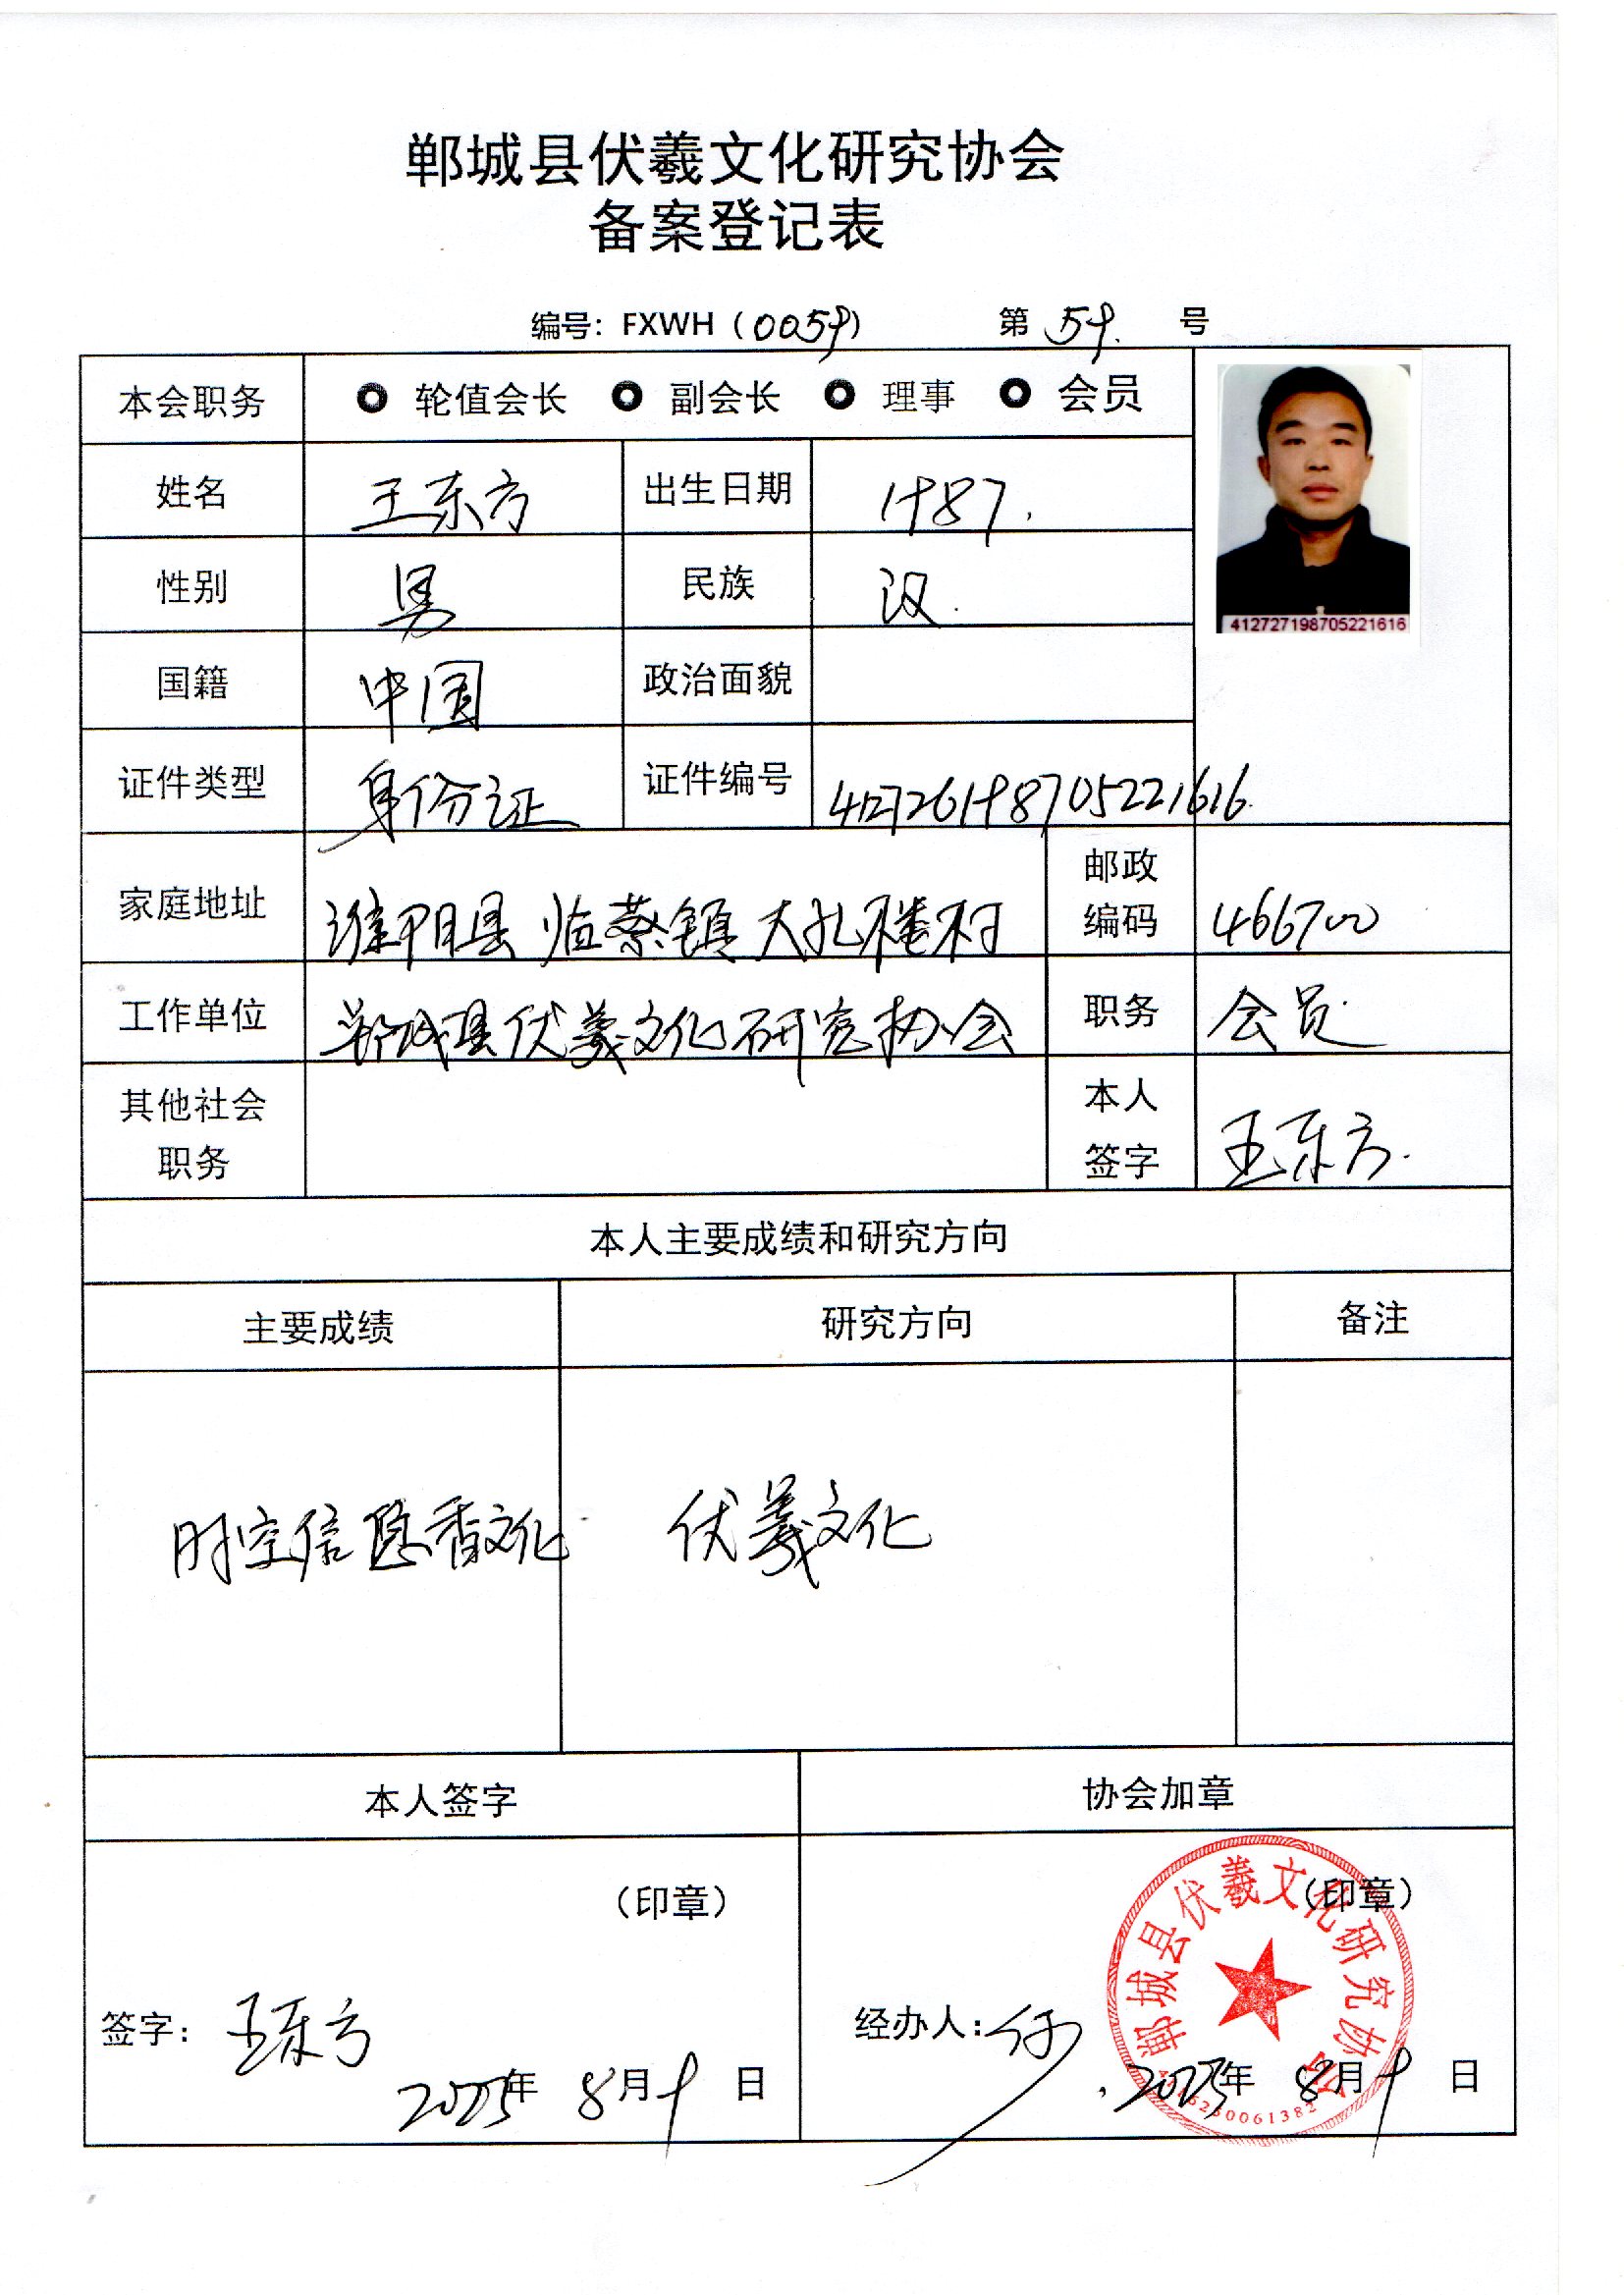 郸城县伏羲文化研究协会
备案登记表
编号：FXWH（0059） 第 59. 号
本会职务 轮值会长 副会长 理事 会员
姓名 王东方 出生日期 1987.
性别 男 民族 汉.
412727198705221616
国籍 中国 政治面貌
证件类型 身份证 证件编号 412726198705221616.
家庭地址 淮阳县临蔡镇大孔楼村 邮政编码 466700
工作单位 郸城县伏羲文化研究协会 职务 会员
其他社会职务 本人签字 王东方.
本人主要成绩和研究方向
主要成绩 研究方向 备注
时空信息香文化 伏羲文化
本人签字 协会加章
（印章） （印章）
郸城县伏羲文化研究协会
签字：王东方 经办人：
2025年 8月9日 2025年 8月9日